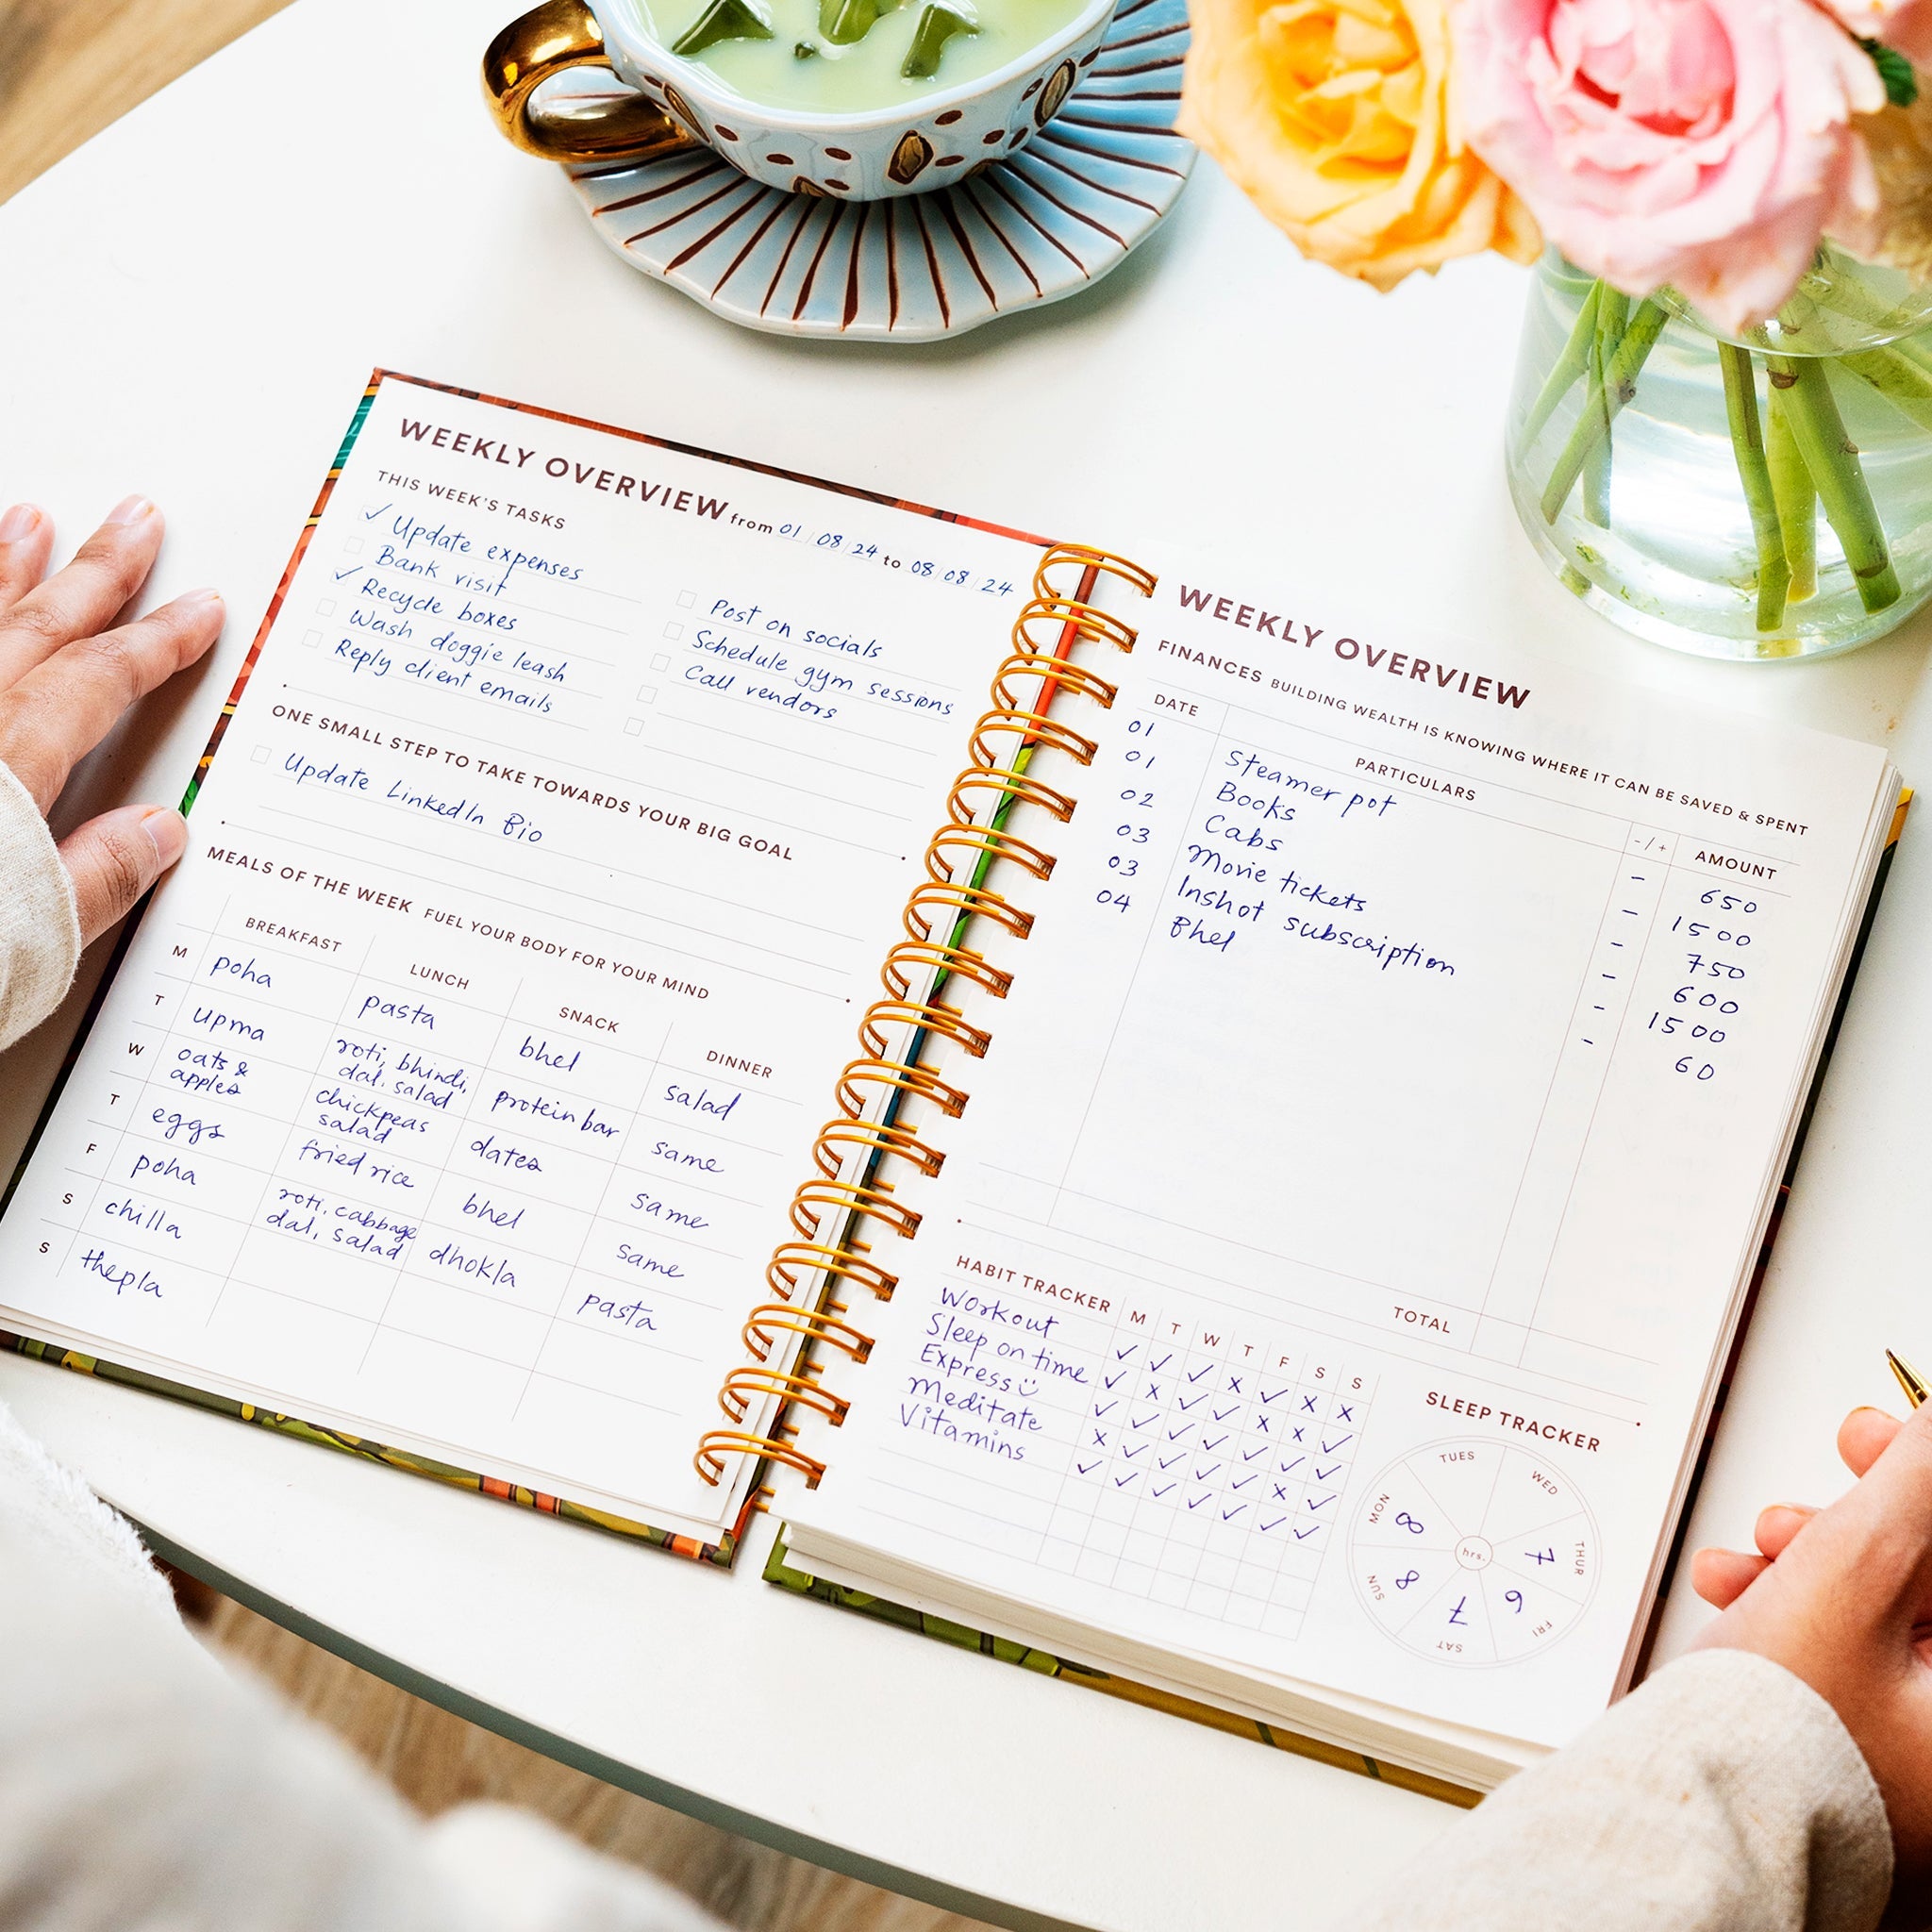 WEEKLY OVERVIEW from 01/08/24 to 08/08/24
THIS WEEK'S TASKS
✓ Update expenses
Bank visit
✓ Recycle boxes
Wash doggie leash
Reply client emails
Post on socials
Schedule gym sessions
Call vendors
ONE SMALL STEP TO TAKE TOWARDS YOUR BIG GOAL
Update LinkedIn Bio
MEALS OF THE WEEK FUEL YOUR BODY FOR YOUR MIND
BREAKFAST LUNCH SNACK DINNER
M poha pasta bhel salad
T upma roti, bhindi, dal, salad protein bar same
W oats & apples chickpeas salad dates same
T eggs fried rice bhel same
F poha roti, cabbage dal, salad dhokla pasta
S chilla
S thepla
WEEKLY OVERVIEW
FINANCES BUILDING WEALTH IS KNOWING WHERE IT CAN BE SAVED & SPENT
DATE PARTICULARS -/+ AMOUNT
01 Steamer pot - 650
01 Books - 1500
02 Cabs - 750
03 Movie tickets - 600
03 Inshot subscription - 1500
04 Bhel - 60
TOTAL
HABIT TRACKER M T W T F S S
Workout ✓ ✓ ✓ x ✓ x x
Sleep on time ✓ x ✓ ✓ x x ✓
Express ☺ ✓ ✓ ✓ ✓ ✓ ✓ ✓
Meditate x ✓ ✓ ✓ ✓ x ✓
Vitamins ✓ ✓ ✓ ✓ ✓ ✓ ✓
SLEEP TRACKER
TUES
WED
MON 8
THUR 7
hrs.
SUN 8
FRI 6
SAT 7